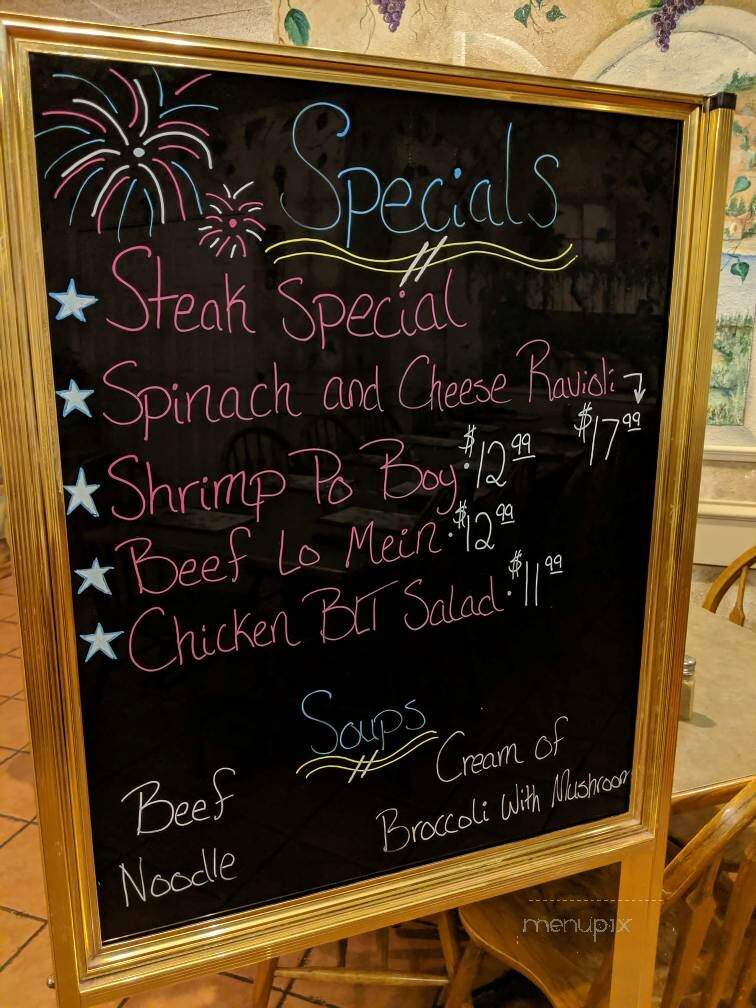 Specials
Steak Special
Spinach and Cheese Ravioli
$17.99
Shrimp Po Boy. $12.99
Beef Lo Mein. $12.99
Chicken BLT Salad. $11.99
Soups
Beef
Noodle
Cream of
Broccoli With Mushroom
menupix